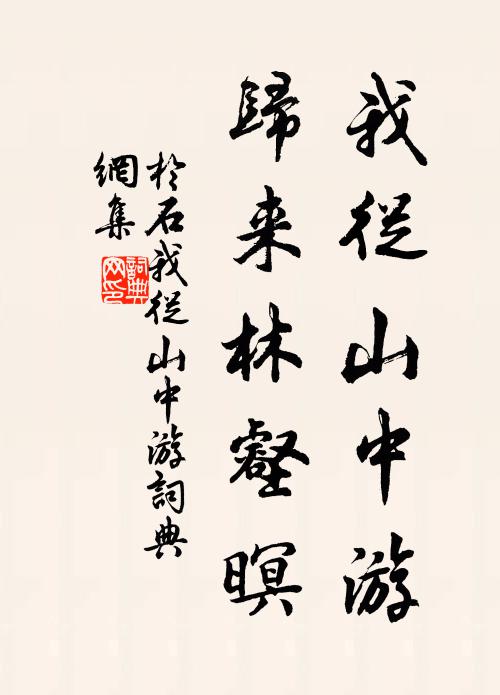 我從山中游
歸来林壑暝
於石我從山中游詞典
網集
詞典
网印